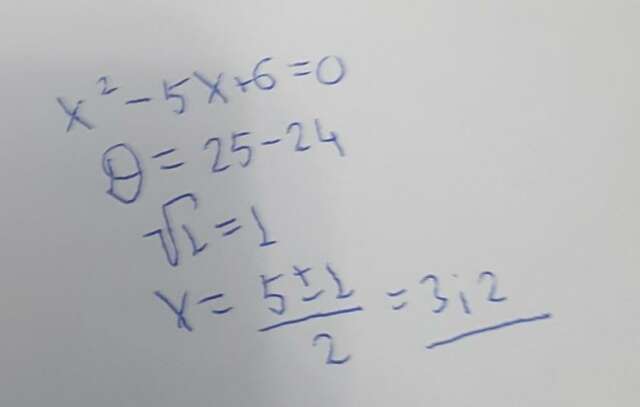 x² - 5x + 6 = 0
D = 25 - 24
√1 = 1
x = (5 ± 1) / 2 = 3; 2